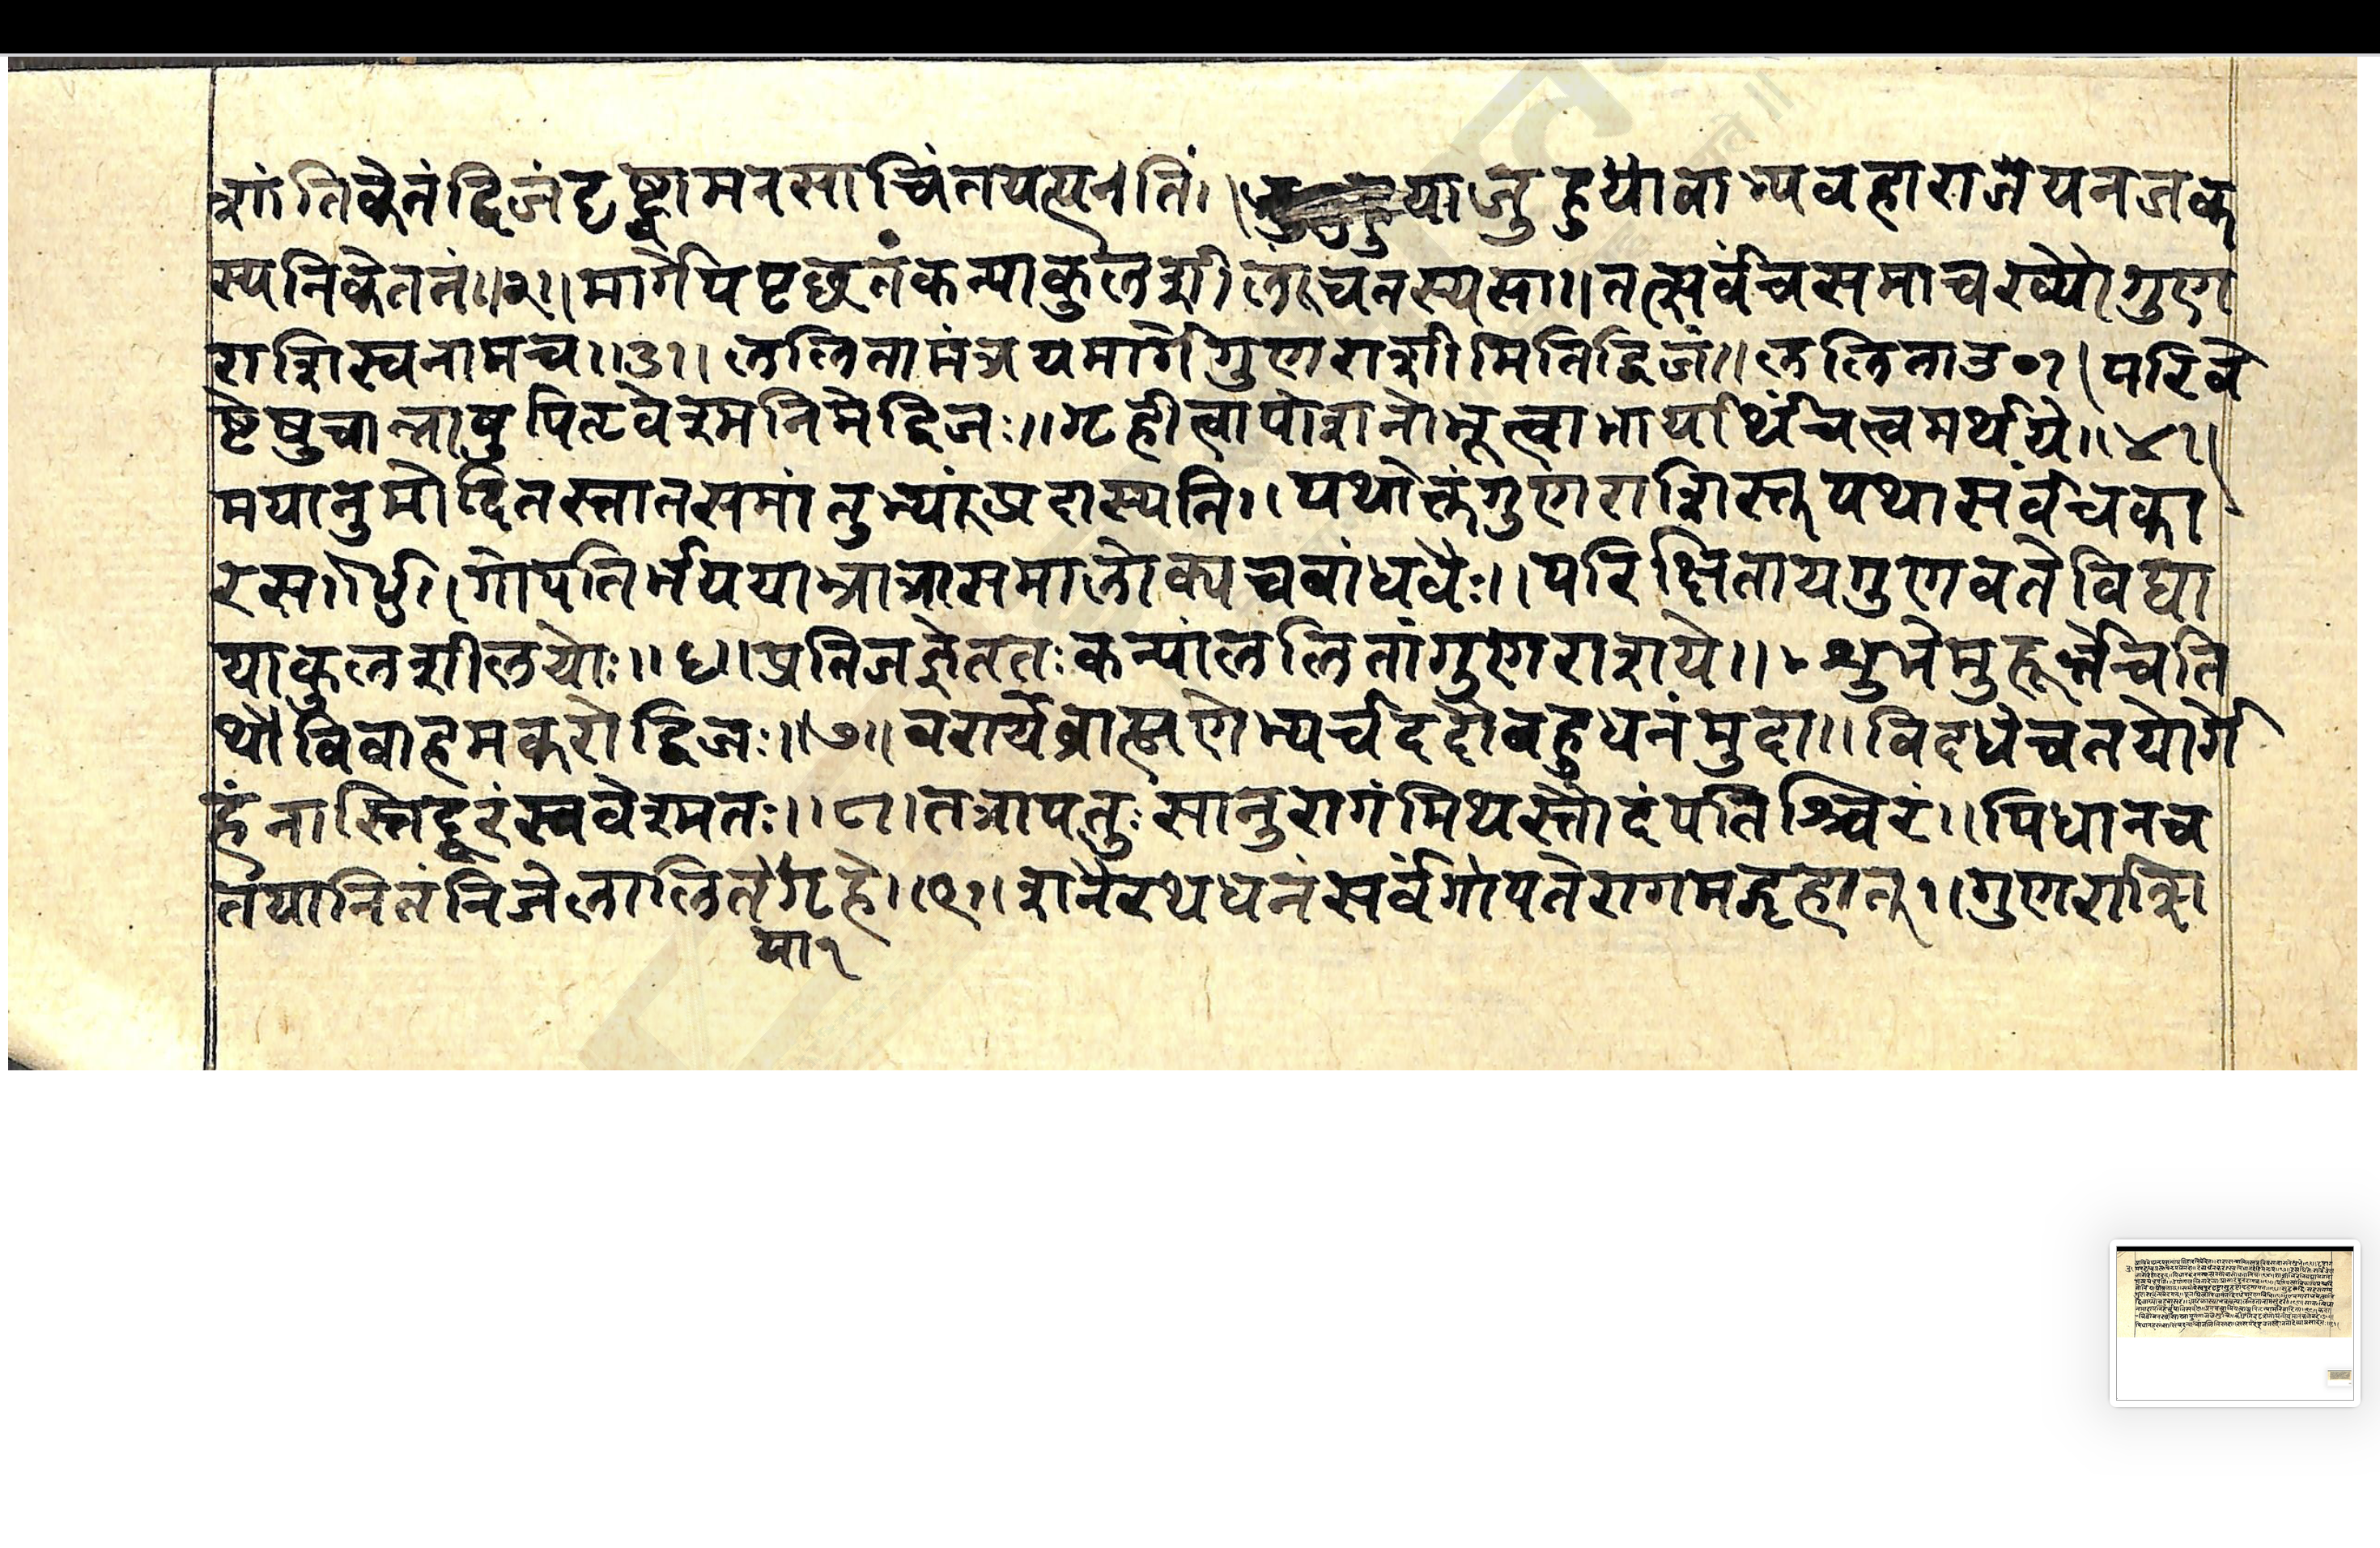 शांतिकेनंद्विजंदृष्ट्वामनसाचिंतयत्पतिं। याजुहुयावाभ्यवहाराजेयनजक
स्यनिकेतनं॥२॥मार्गेपिपृछतंकन्याकुलशीलंचतस्यसा॥तत्सर्वंचसमाचख्यौगुण
राशिस्वनामच॥३॥ललितामंत्रयमार्गेगुणराशीमितिद्विजं॥ललिताउ०१।परिवे
ष्टेषुचान्नाषुपितृवेश्मनिमेद्विजः॥गृहीत्वापोशनोभूत्वाभार्यार्थंचत्वमर्थये॥४॥
मयानुमोदितस्तातसमांतुभ्यांप्रदास्यति॥पथोक्तंगुणराशिस्तुपथासर्वंचका
रस॥५॥गोपतिर्मपययाभ्रात्रासमालोक्यचबांधवैः॥परिक्षितायगुणवतेविद्या
याकुलशीलयोः॥६॥प्रतिजज्ञेततःकन्यांललितांगुणराशये॥शुभेमुहूर्त्तेचति
थौविवाहमकरोद्विजः॥७॥वरार्येब्राह्मणेभ्यर्चददौबहुधनंमुदा॥विदधेचतयोर्गे
हंनास्तिदूरंस्ववेश्मतः॥८॥तत्रापतुःसानुरागंमिथस्तौदंपतिश्चिरं॥पिधानच
तयानितंनिजेलालितेगृहे॥९॥शनैरथधनंसर्वंगोपतेरागमद्गृहात्॥गुणराशि
पा१